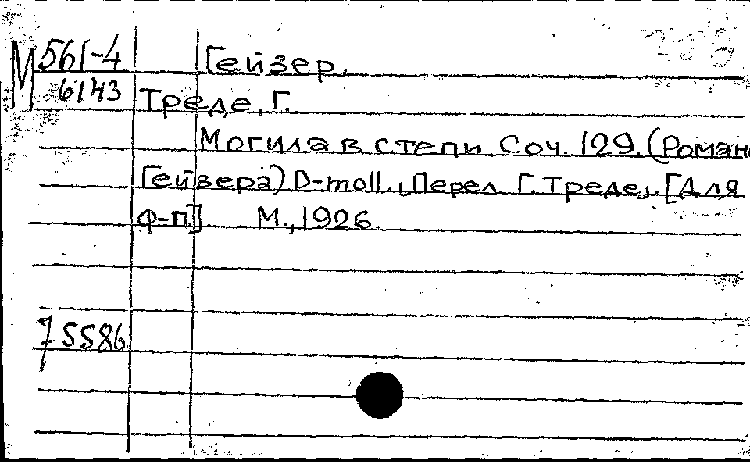 М 561-4 Гейзер.
6143 Треде, Г.
Могила в степи Соч. 129. (Роман
Гейзера) D-moll., Перел. Г. Треде,. [Для
ф-п.] М., 1926
75586